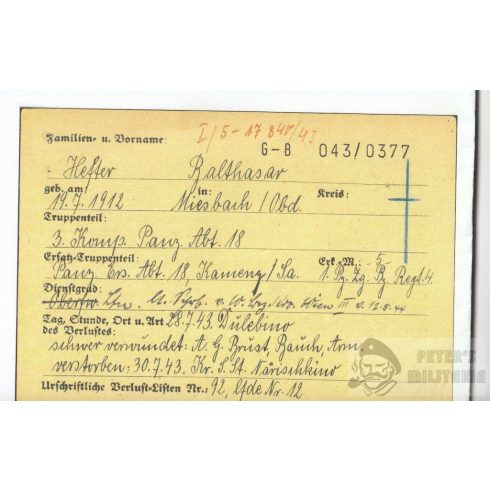 I/5-17 840/43
Familien- u. Vorname:
G-B 043/0377
Hefter Balthasar
geb. am in: Kreis:
19.7.1912 Miesbach/Obd.
Truppenteil:
3. Komp. Panz. Abt. 18
Ersatz-Truppenteil: Erk.-M.: -5-
Panz. Ers. Abt. 18, Kamenz/Sa. 1. Pz. Zg. Pz. Regt. 4.
Dienstgrad:
Ltn. lt. Schrb. v. Wien III v. 12.5.44
Tag, Stunde, Ort u. Art 28.7.43. Dulebino
des Verlustes:
schwer verwundet: A. G. Brust, Bauch, Arm
verstorben: 30.7.43. Kr. S. St. Narischkino
Urschriftliche Verlust-Listen Nr.: 92, lfde Nr. 12
PETER'S
MILITARIA